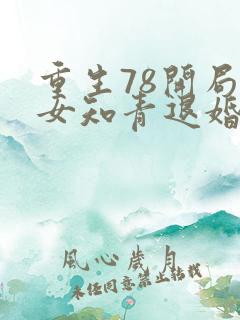 重生78开局
女知青退婚
风心岁月
未经同意禁止转载